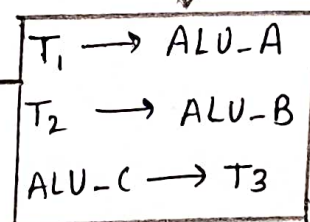 T₁ → ALU-A
T₂ → ALU-B
ALU-C → T3